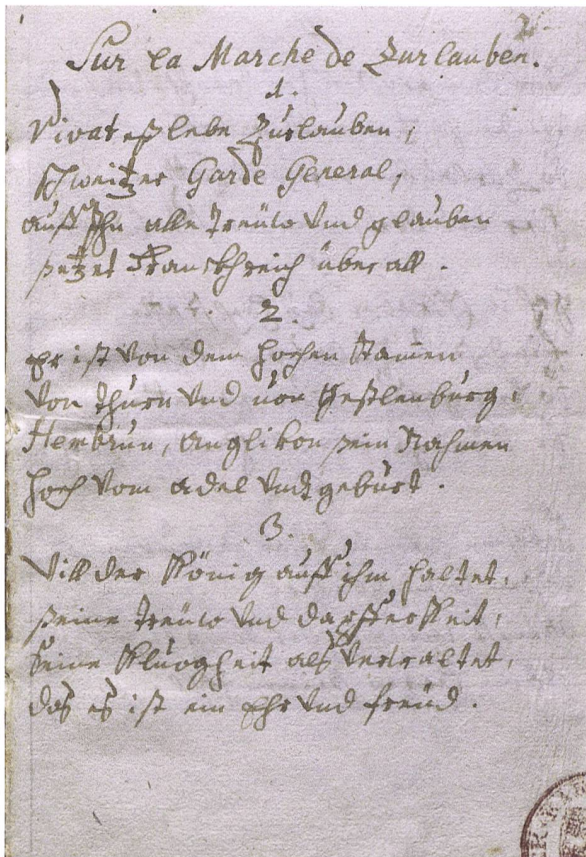 Sur la Marche de Zurlauben.
1.
Vivat eß lebe Zurlauben,
schweitzer Garde General,
auff Ihn alle treüw Vnd glauben
setzet Franckhreich über all.
2.
Er ist Von dem hochen Stammen
Von Thurn Vnd von Gestlenburg,
Hembrun, Anglikon sein Nahmen
hoch Vom adel Vndt geburt.
3.
Vill der König auff ihm haltet,
seine treüw Vnd
seine Kluogheit alß Verwaltet,
das es ist ein Ehr Vnd freüd.